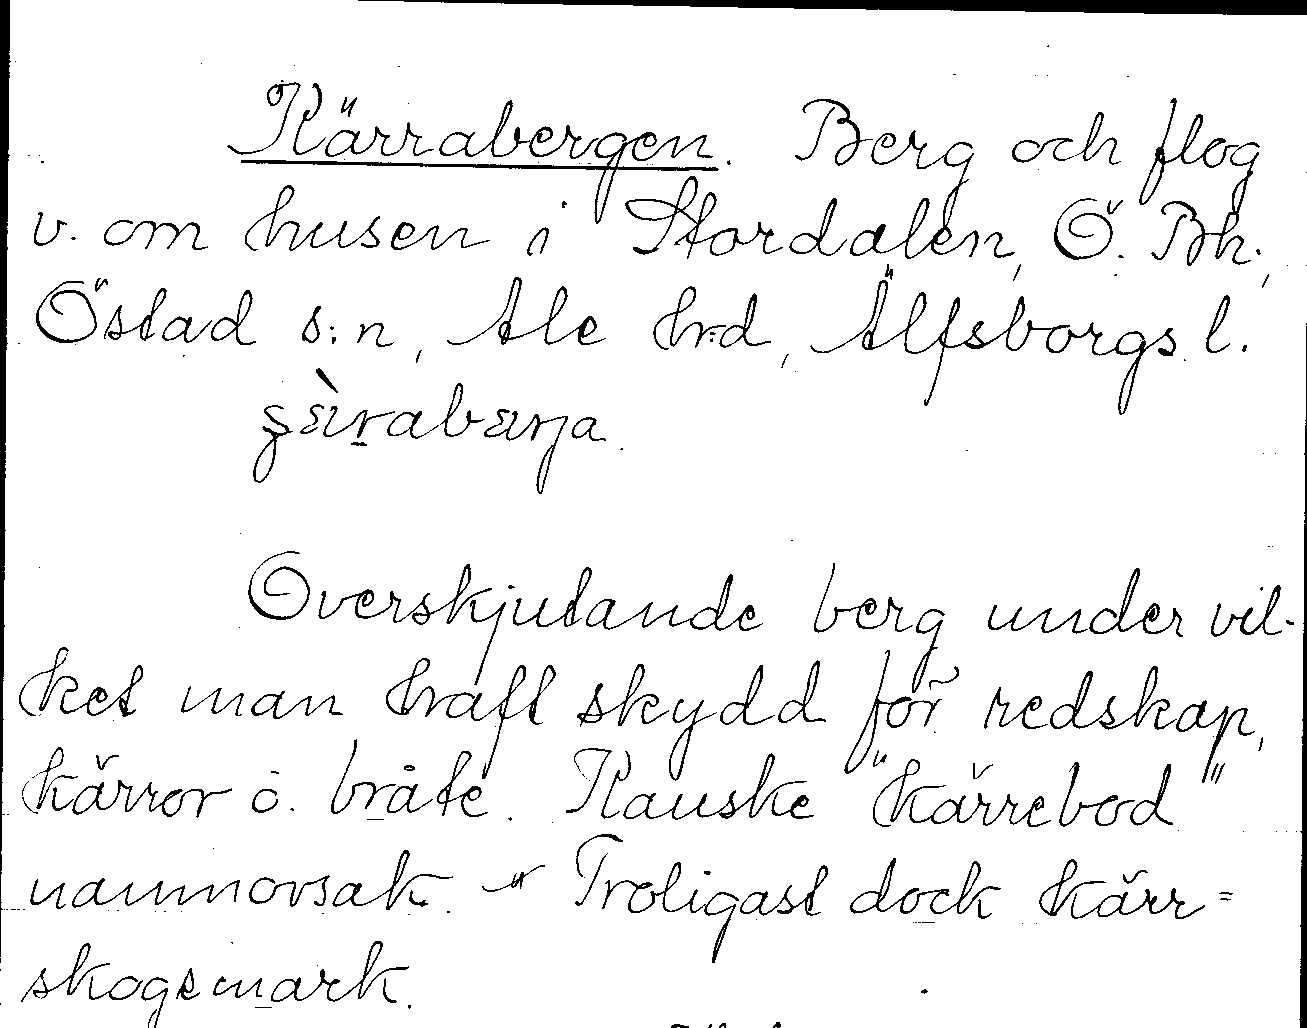 Kärrabergen. Berg och flog
v. om husen i Stordalen, Ö. Bh.,
Östad s:n, Ale h:d, Älfsborgs l.
Överskjutande berg under vil-
ket man haft skydd för redskap,
kärror o. bråte. Kanske "kärrebod"
namnorsak. - Troligast dock kärr=
skogsmark.